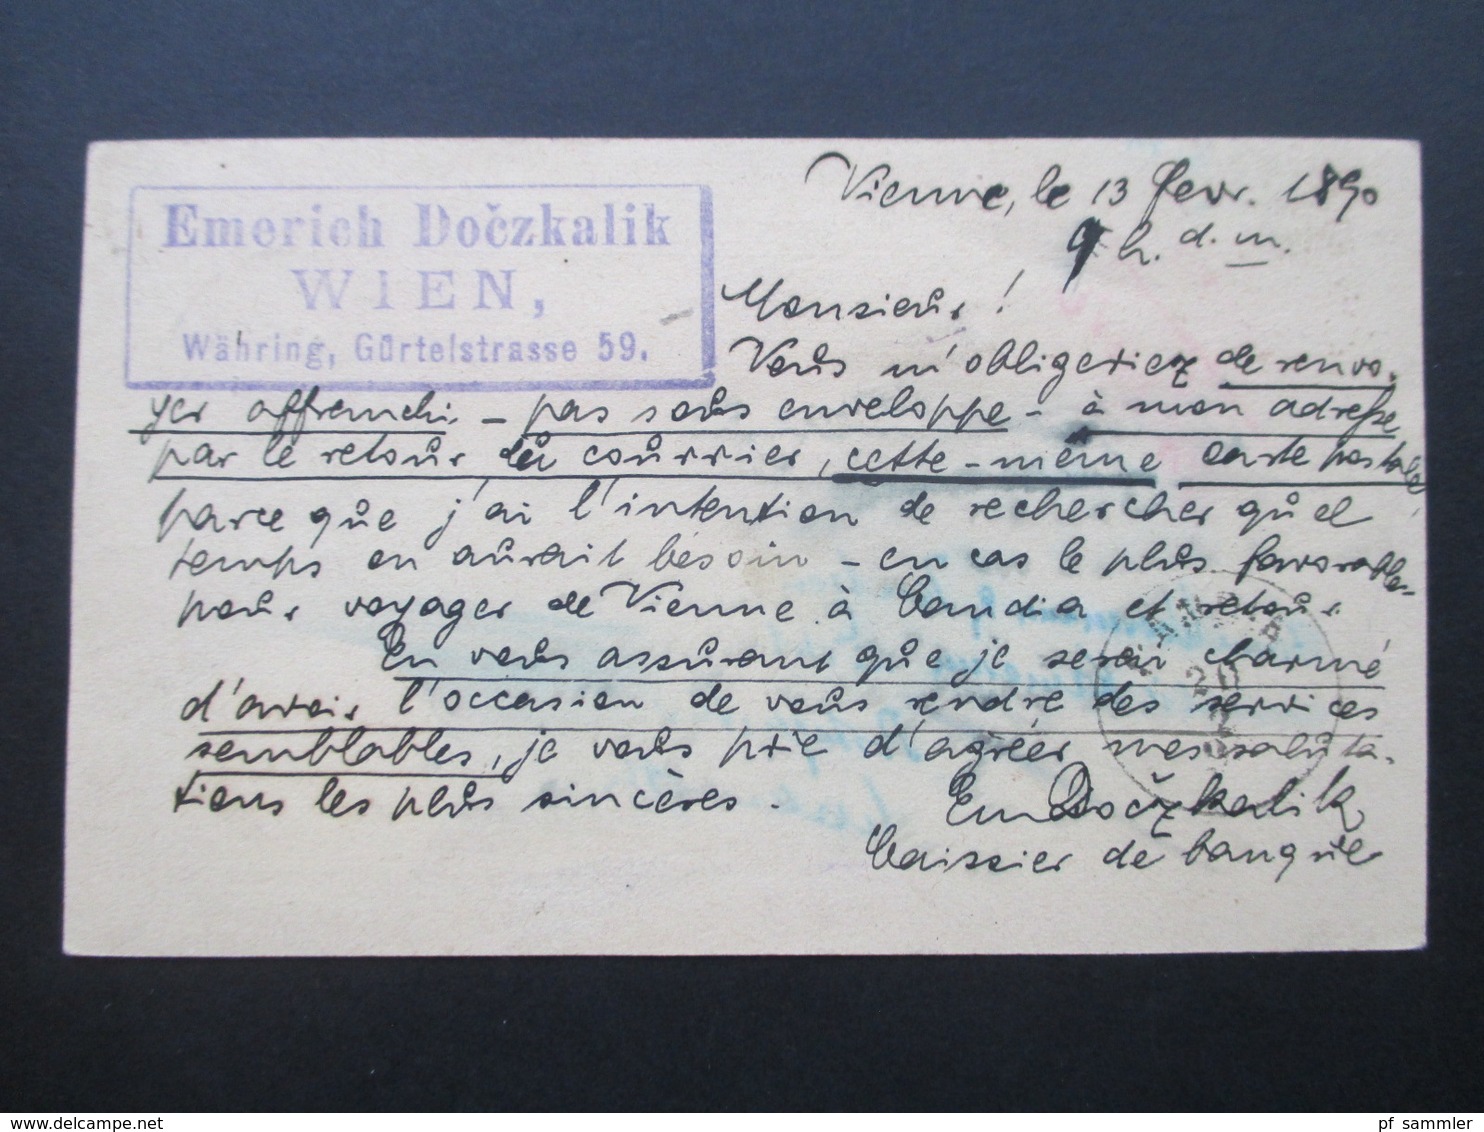 Emerich Dočzkalik
WIEN,
Währing, Gürtelstrasse 59.
Vienne, le 13 fevr. 1890
9 h. d. m.
Monsieur!
Vous m'obligeriez de renvo-
yer affranchi - pas sous enveloppe - à mon adresse
par le retour du courrier, cette-même carte postale
parce que j'ai l'intention de rechercher quel
temps on aurait besoin - en cas le plus favorable -
pour voyager de Vienne à Candia et retour.
En vous assurant que je serai charmé
d'avoir l'occasion de vous rendre des services
semblables, je vous prie d'agréer mes saluta-
tions les plus sincères.
Em Dočzkalik
Caissier de banque
pf_sammler